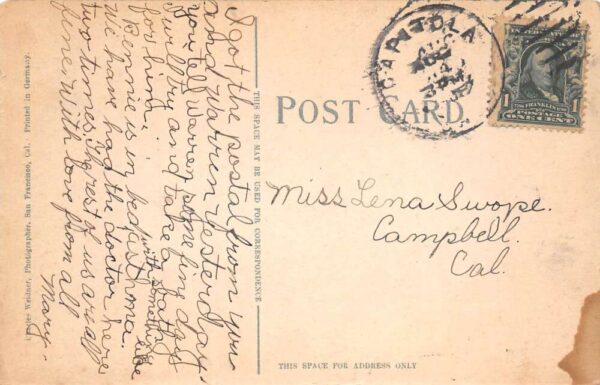 POST CARD
THIS SPACE MAY BE USED FOR CORRESPONDENCE
THIS SPACE FOR ADDRESS ONLY
Weidner, Photographer, San Francisco, Cal. Printed in Germany.
I got the postal from you
and Warren yesterday.
you tell Warren some fine day
I will try and take a bath
for him.
Bennie is in bed with something like asthma.
We have had the doctor here
two times. The rest of us are all
fine. With love from all
Mary.
Miss Lena Swope.
Campbell.
Cal.
CAPITOLA
1 FRANKLIN 1
POSTAGE
ONE CENT